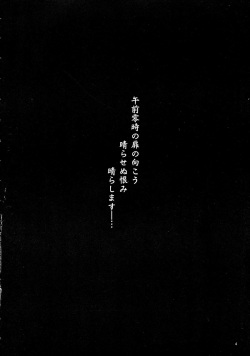 午前零時の扉の向こう
晴らせぬ恨み
晴らします――…